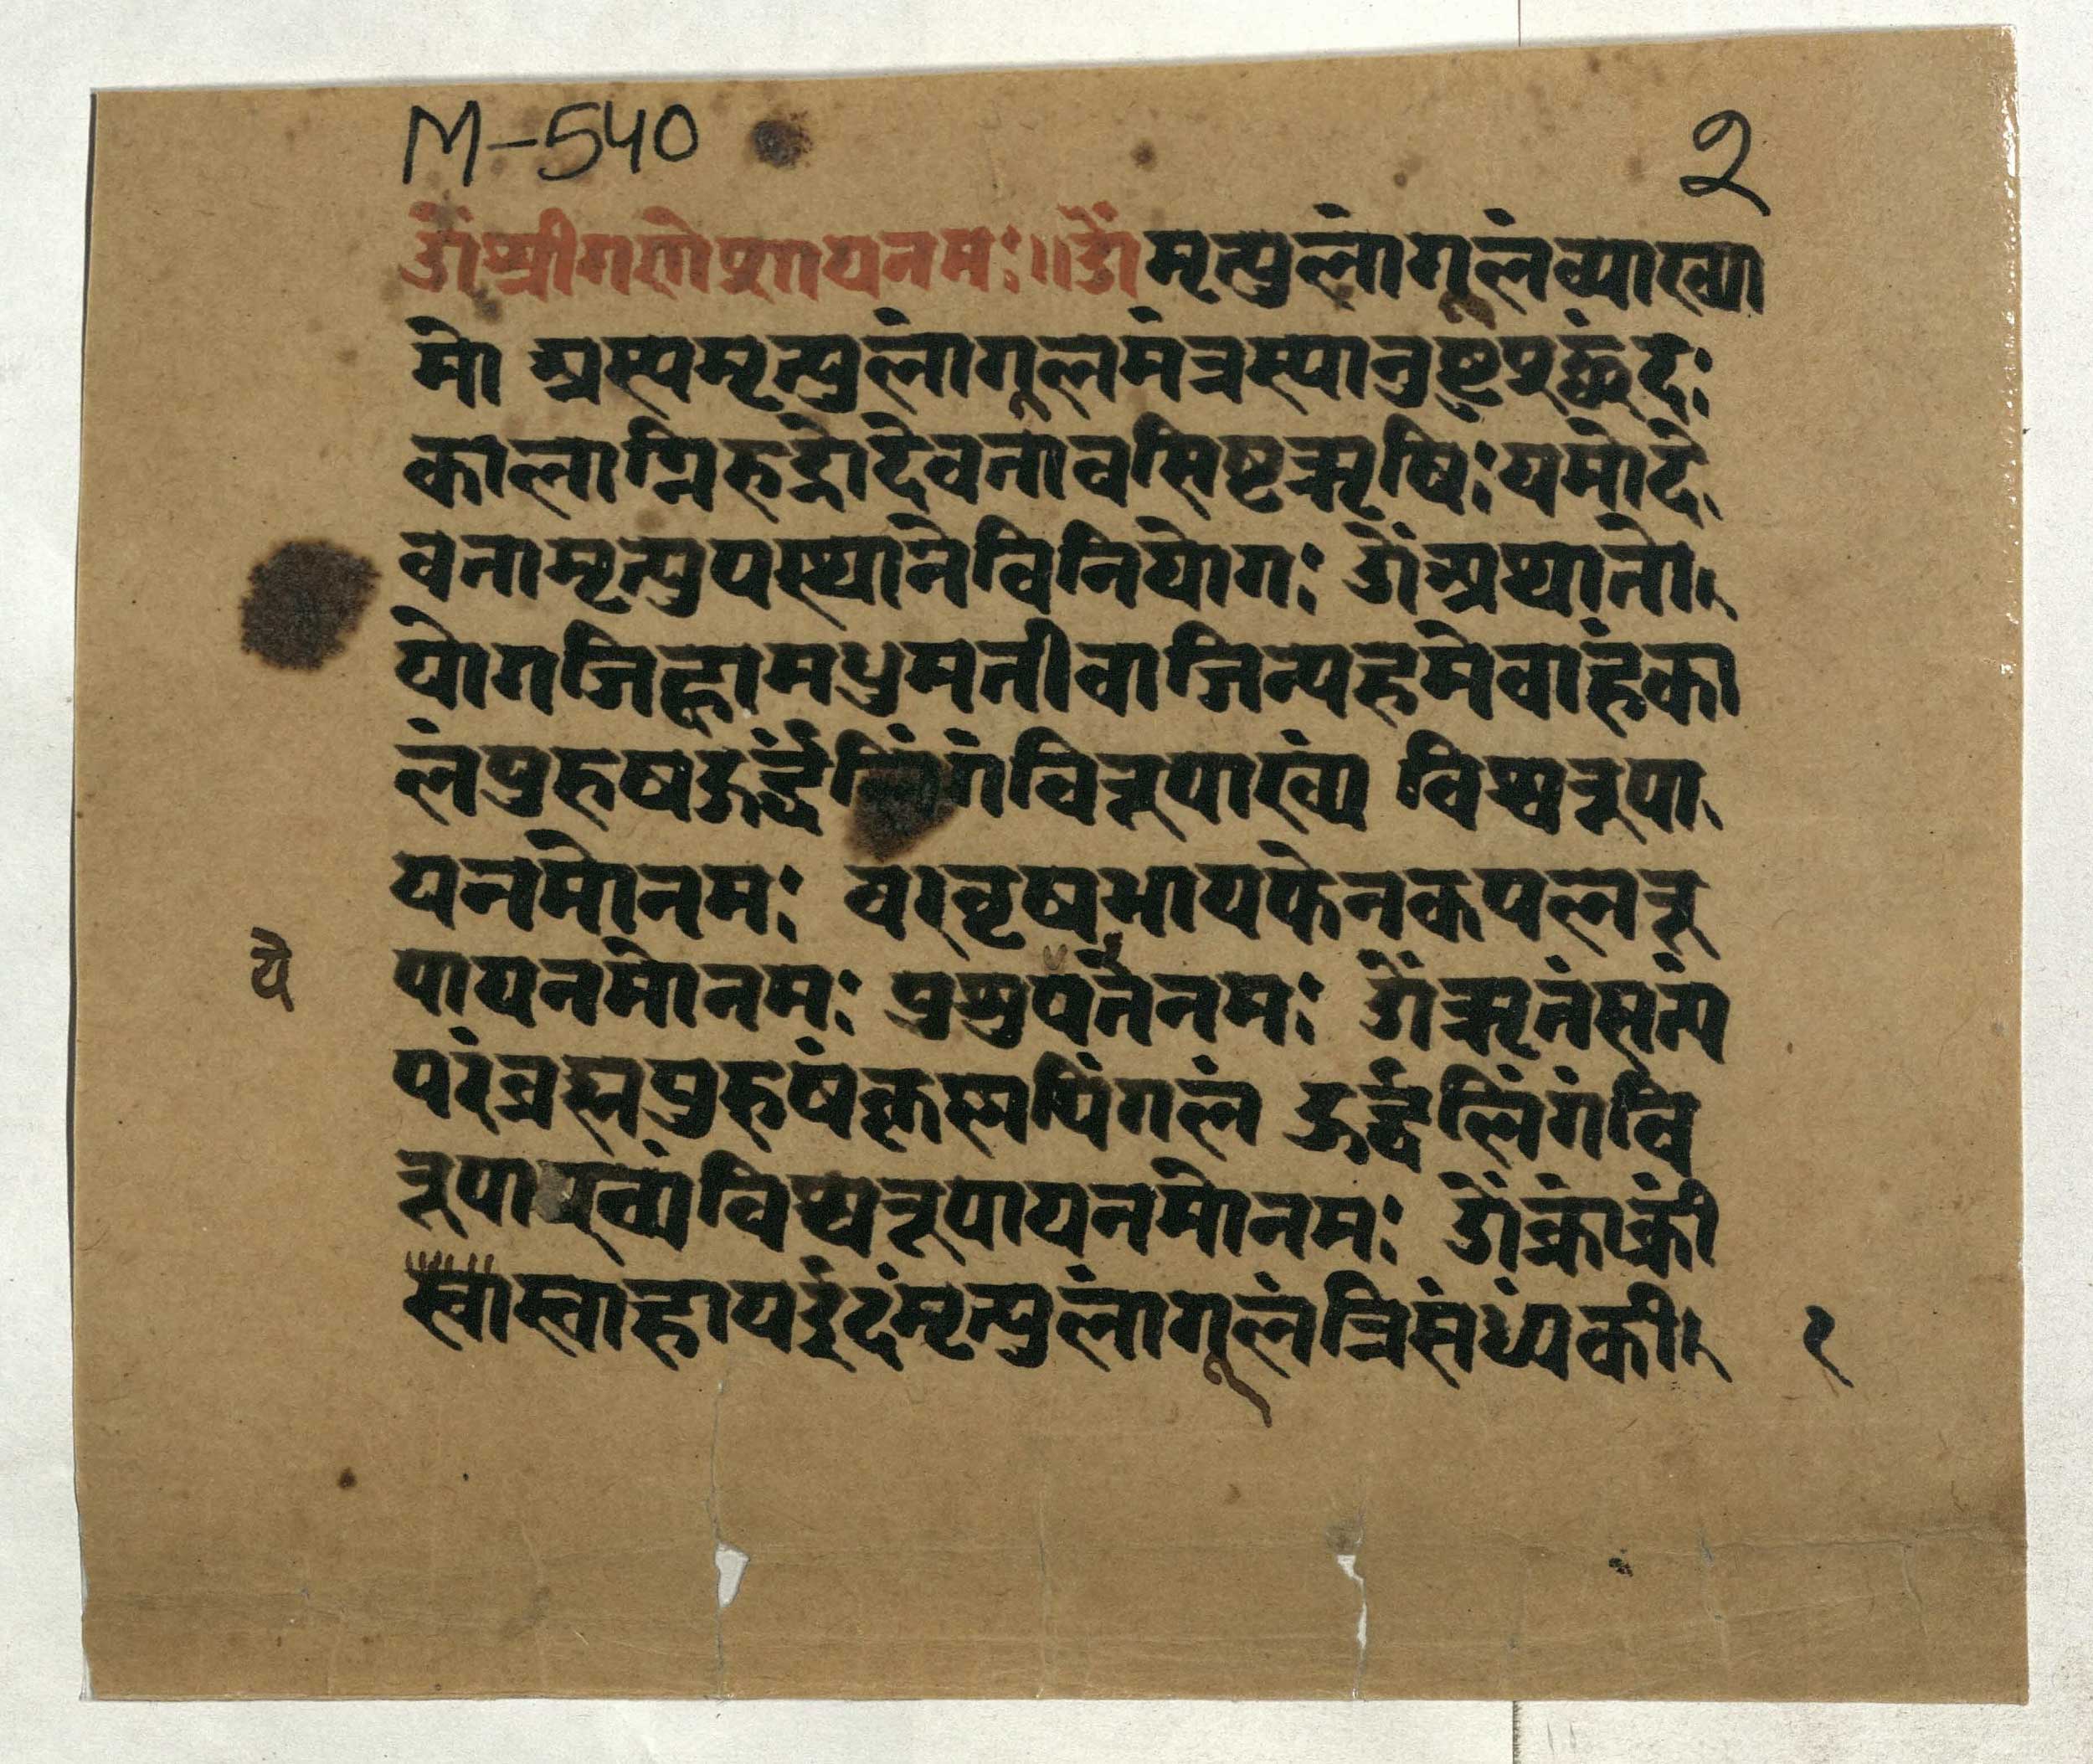 M-540
२
ॐश्रीगणेशायनमः॥ॐमृत्युलांगूलंव्याख्या
मो अस्यमृत्युलांगूलमंत्रस्यानुष्टुप्छंदः
कालाग्निरुद्रोदेवतावसिष्टऋषिः यमोदे
वतामृत्युपस्थानेविनियोगः ॐअथातो
योगजिह्वामधुमतीवाजित्यहमेवाहंका
लंपुरुषऊर्द्ध्वलिंगंविरूपाख्यं विश्वरूपा
यनमोनमः व।वृषभायफेनकपलरू
पायनमोनमः पशुपतनेनमः ॐऋतंसत्यं
ये
परंब्रह्मपुरुषंकृष्णपिंगलं ऊर्द्ध्वलिंगंवि
रूपाख्यंविश्वरूपायनमोनमः ॐक्रांक्रीं
स्वास्वाहायइदंमृत्युलांगूलंत्रिसंध्यंकी
१